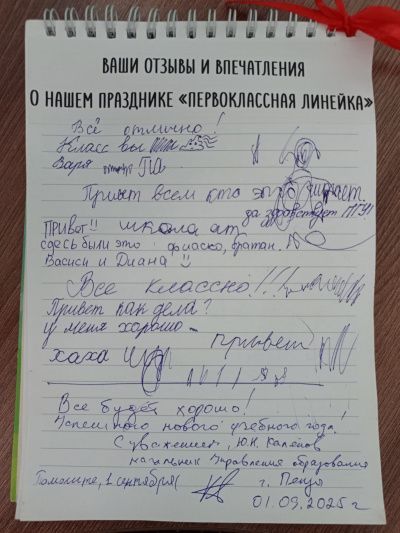 ВАШИ ОТЗЫВЫ И ВПЕЧАТЛЕНИЯ
О НАШЕМ ПРАЗДНИКЕ «ПЕРВОКЛАССНАЯ ЛИНЕЙКА»
Всё отлично!
Класс вы
Варя
Привет всем кто это читает.
да здравствует ПГУ!!
ПРИВЕТ!! школа
сдесь были это фиаско, братан.
Васиси и Диана
Все классно!!!
Привет как дела?
у меня хорошо
привет
хаха
Все будет хорошо!
Успешного нового учебного года!
С уважением, Ю.К.
начальник Управления образования
Помогите, 1 сентября(
г. Пенза
01.09.2025 г